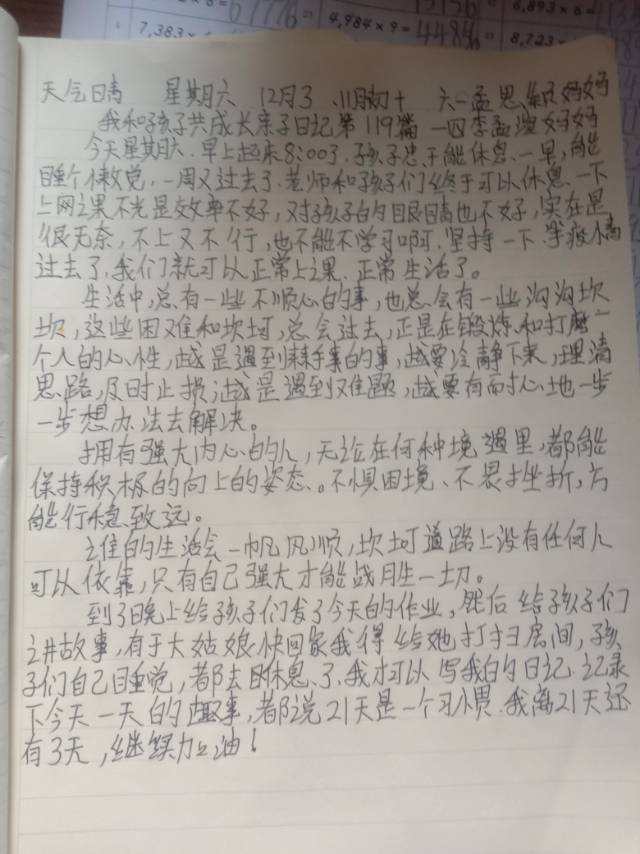 7,383×6
4,984×9=44856
6,893×6=
8,723
天气晴 星期六 12月3、11月初十 六一孟思 妈妈
我和孩子共成长亲子日记第119篇 一四李孟 妈妈
今天星期六.早上起来8:00了.孩子忠于能休息.一早,能
睡个懒觉.一周又过去了.老师和孩子们终于可以休息.一下
上网课不光是效率不好,对孩子的眼睛也不好,实在是
很无奈,不上又不行,也不能不学习啊.坚持一下.等疫情
过去了.我们就可以正常上课.正常生活了。
生活中,总有一些不顺心的事,也总会有一些沟沟坎
坎,这些困难和坎坷,总会过去,正是在锻炼和打磨一
个人的心性,越是遇到棘手的事,越要冷静下来,理清
思路,及时止损;越是遇到难题,越要有耐心地一步
一步想办法去解决。
拥有强大内心的人,无论在何种境遇里,都能
保持积极的向上的姿态.。不惧困境、不畏挫折,方
能行稳致远。
谁的生活会一帆风顺,坎坷道路上没有任何人
可以依靠,只有自己强大才能战胜一切。
到了晚上给孩子们发了今天的作业,然后给孩子们
讲故事,有于大姑娘快回家我得给她打扫房间,孩
子们自己睡觉,都去休息.了.我才可以写我的日记.记录
下今天一天的趣事,都说21天是一个习惯.我离21天还
有3天,继续加油!